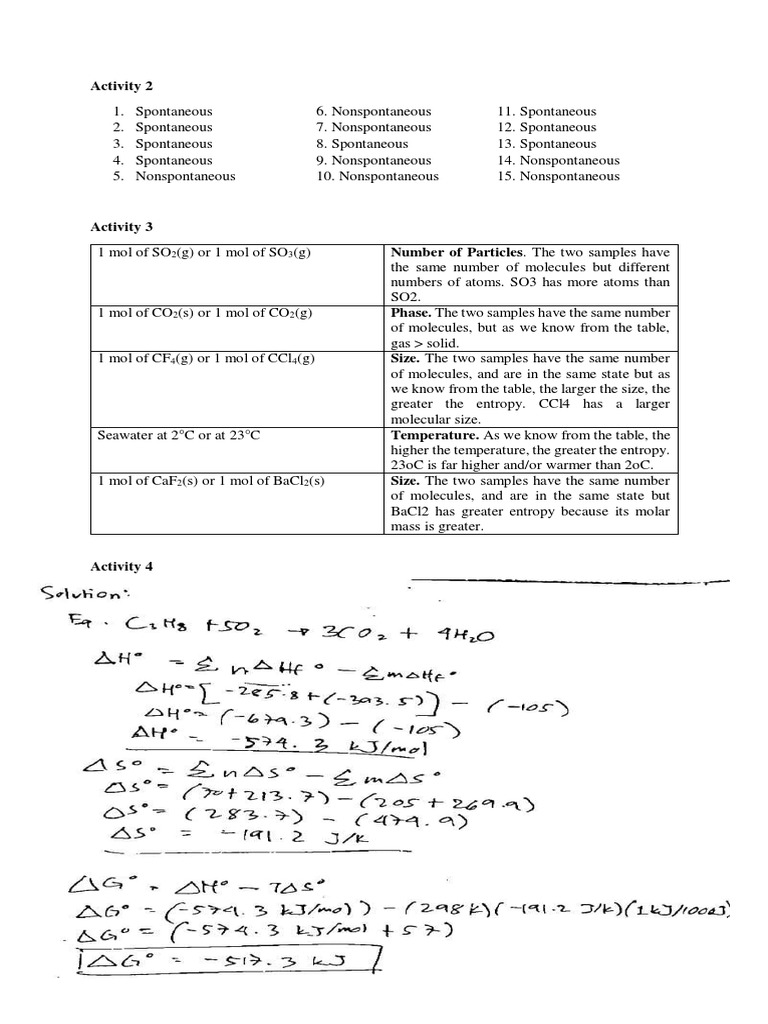 Activity 2
1. Spontaneous 6. Nonspontaneous 11. Spontaneous
2. Spontaneous 7. Nonspontaneous 12. Spontaneous
3. Spontaneous 8. Spontaneous 13. Spontaneous
4. Spontaneous 9. Nonspontaneous 14. Nonspontaneous
5. Nonspontaneous 10. Nonspontaneous 15. Nonspontaneous
Activity 3
1 mol of SO₂(g) or 1 mol of SO₃(g)
Number of Particles. The two samples have
the same number of molecules but different
numbers of atoms. SO3 has more atoms than
SO2.
1 mol of CO₂(s) or 1 mol of CO₂(g)
Phase. The two samples have the same number
of molecules, but as we know from the table,
gas > solid.
1 mol of CF₄(g) or 1 mol of CCl₄(g)
Size. The two samples have the same number
of molecules, and are in the same state but as
we know from the table, the larger the size, the
greater the entropy. CCl4 has a larger
molecular size.
Seawater at 2°C or at 23°C
Temperature. As we know from the table, the
higher the temperature, the greater the entropy.
23oC is far higher and/or warmer than 2oC.
1 mol of CaF₂(s) or 1 mol of BaCl₂(s)
Size. The two samples have the same number
of molecules, and are in the same state but
BaCl2 has greater entropy because its molar
mass is greater.
Activity 4
Solution:
Eq. C₃H₈ + 5O₂ → 3CO₂ + 4H₂O
ΔH° = Σ nΔHf° − ΣmΔHf°
ΔH° = [-285.8 + (-393.5)] − (-105)
ΔH° = (-679.3) − (-105)
ΔH° = -574.3 kJ/mol
ΔS° = ΣnΔS° − ΣmΔS°
ΔS° = (70+213.7) − (205 + 269.9)
ΔS° = (283.7) − (474.9)
ΔS° = -191.2 J/K
ΔG° = ΔH° − TΔS°
ΔG° = (-574.3 kJ/mol) − (298K)(-191.2 J/K)(1kJ/1000J)
ΔG° = (-574.3 kJ/mol + 57)
ΔG° = -517.3 kJ